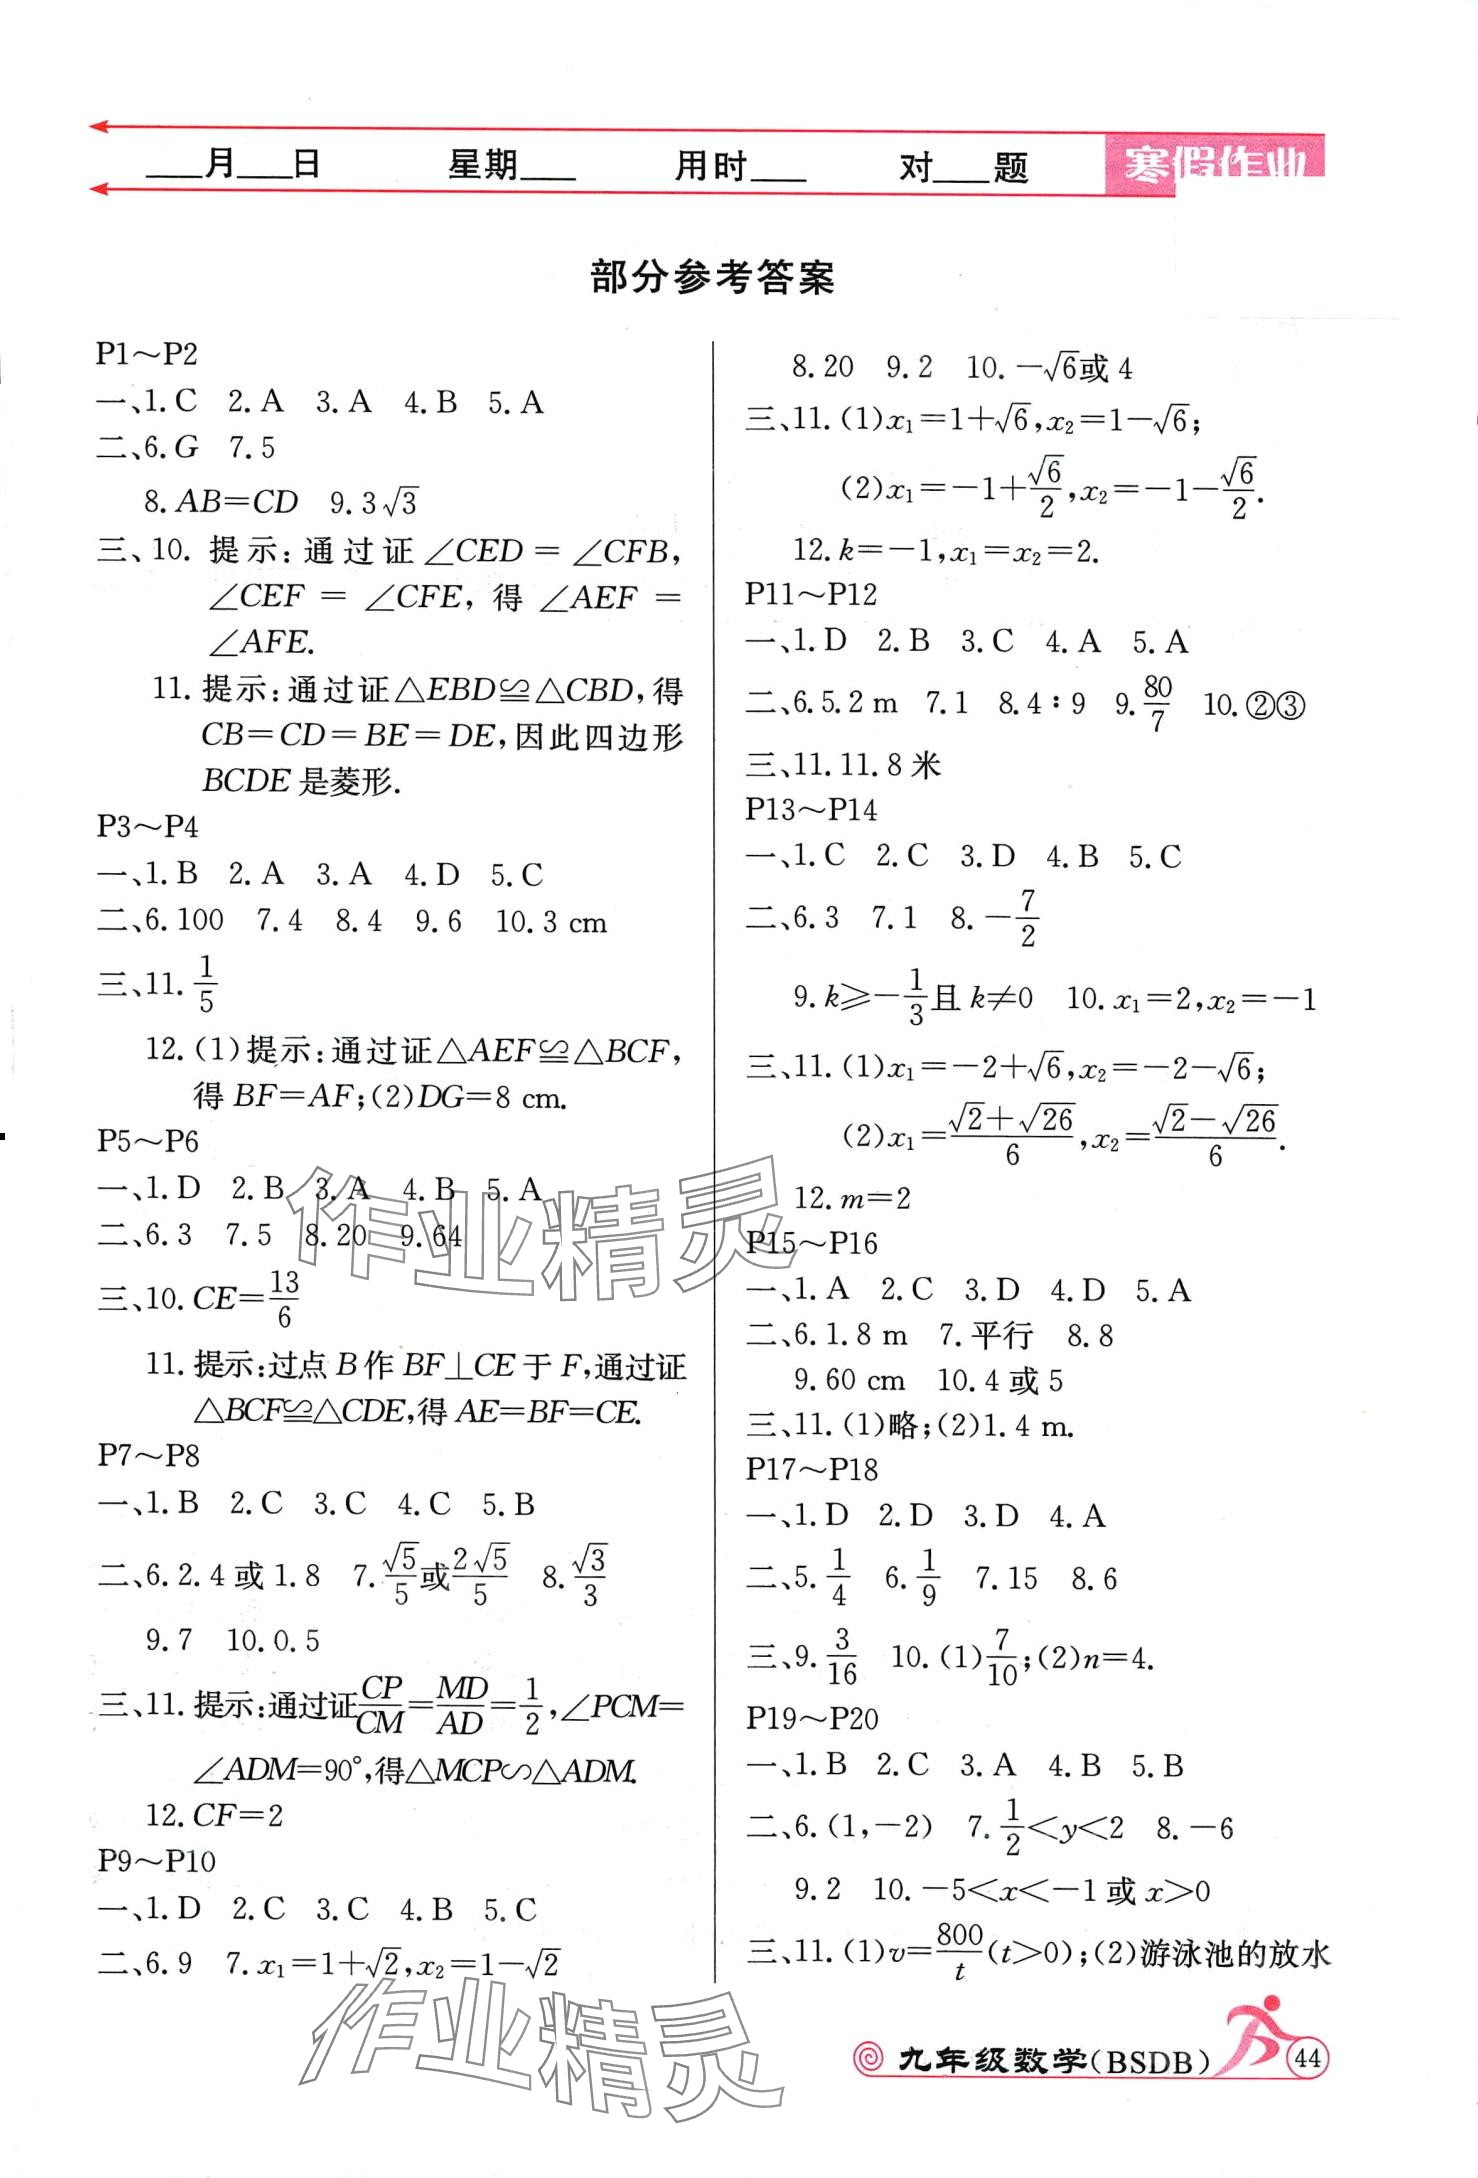 ___月___日 星期___ 用时___ 对___题 寒假作业
部分参考答案
P1～P2
一、1. C 2. A 3. A 4. B 5. A
二、6. G 7. 5
8. AB=CD 9. 3√3
三、10. 提示:通过证∠CED=∠CFB,
∠CEF=∠CFE,得∠AEF=
∠AFE.
11. 提示:通过证△EBD≌△CBD,得
CB=CD=BE=DE,因此四边形
BCDE是菱形.
P3～P4
一、1. B 2. A 3. A 4. D 5. C
二、6. 100 7. 4 8. 4 9. 6 10. 3 cm
三、11. 1/5
12. (1)提示:通过证△AEF≌△BCF,
得BF=AF;(2)DG=8 cm.
P5～P6
一、1. D 2. B 3. A 4. B 5. A
二、6. 3 7. 5 8. 20 9. 64
三、10. CE=13/6
11. 提示:过点B作BF⊥CE于F,通过证
△BCF≌△CDE,得AE=BF=CE.
P7～P8
一、1. B 2. C 3. C 4. C 5. B
二、6. 2. 4或1. 8 7. √5/5或2√5/5 8. √3/3
9. 7 10. 0. 5
三、11. 提示:通过证CP/CM=MD/AD=1/2,∠PCM=
∠ADM=90°,得△MCP∽△ADM.
12. CF=2
P9～P10
一、1. D 2. C 3. C 4. B 5. C
二、6. 9 7. x₁=1+√2,x₂=1-√2
8. 20 9. 2 10. -√6或4
三、11. (1)x₁=1+√6,x₂=1-√6;
(2)x₁=-1+√6/2,x₂=-1-√6/2.
12. k=-1,x₁=x₂=2.
P11～P12
一、1. D 2. B 3. C 4. A 5. A
二、6. 5. 2 m 7. 1 8. 4∶9 9. 80/7 10. ②③
三、11. 11. 8米
P13～P14
一、1. C 2. C 3. D 4. B 5. C
二、6. 3 7. 1 8. -7/2
9. k≥-1/3且k≠0 10. x₁=2,x₂=-1
三、11. (1)x₁=-2+√6,x₂=-2-√6;
(2)x₁=(√2+√26)/6,x₂=(√2-√26)/6.
12. m=2
P15～P16
一、1. A 2. C 3. D 4. D 5. A
二、6. 1. 8 m 7. 平行 8. 8
9. 60 cm 10. 4或5
三、11. (1)略;(2)1. 4 m.
P17～P18
一、1. D 2. D 3. D 4. A
二、5. 1/4 6. 1/9 7. 15 8. 6
三、9. 3/16 10. (1)7/10;(2)n=4.
P19～P20
一、1. B 2. C 3. A 4. B 5. B
二、6. (1,-2) 7. 1/2<y<2 8. -6
9. 2 10. -5<x<-1或x>0
三、11. (1)v=800/t(t>0);(2)游泳池的放水
作业精灵
作业精灵
九年级数学(BSDB) 44